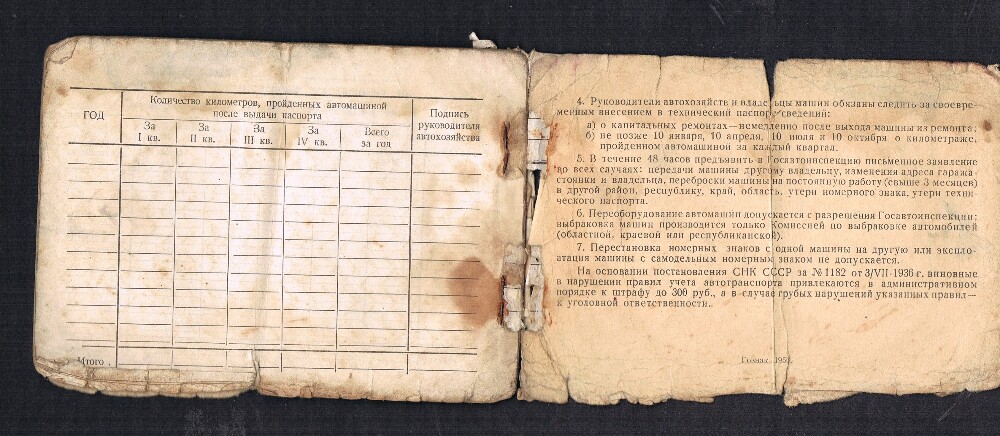 ГОД
Количество километров, пройденных автомашиной
после выдачи паспорта
Подпись
руководителя
автохозяйства
За
I кв.
За
II кв.
За
III кв.
За
IV кв.
Всего
за год
Итого
4. Руководители автохозяйств и владельцы машин обязаны следить за своевре-
менным внесением в технический паспорт сведений:
а) о капитальных ремонтах—немедленно после выхода машины из ремонта;
б) не позже 10 января, 10 апреля, 10 июля и 10 октября о километраже,
пройденном автомашиной за каждый квартал.
5. В течение 48 часов предъявить в Госавтоинспекцию письменное заявление
во всех случаях: передачи машины другому владельцу, изменения адреса гаража-
стоянки и владельца, переброски машины на постоянную работу (свыше 3 месяцев)
в другой район, республику, край, область, утери номерного знака, утери техни-
ческого паспорта.
6. Переоборудование автомашин допускается с разрешения Госавтоинспекции;
выбраковка машин производится только Комиссией по выбраковке автомобилей
(областной, краевой или республиканской).
7. Перестановка номерных знаков с одной машины на другую или эксплоа-
атация машины с самодельным номерным знаком не допускается.
На основании постановления СНК СССР за № 1182 от 3/VII-1936 г. виновные
в нарушении правил учета автотранспорта привлекаются в административном
порядке к штрафу до 300 руб., а в случае грубых нарушений указанных правил—
к уголовной ответственности.
Гознак. 1952.